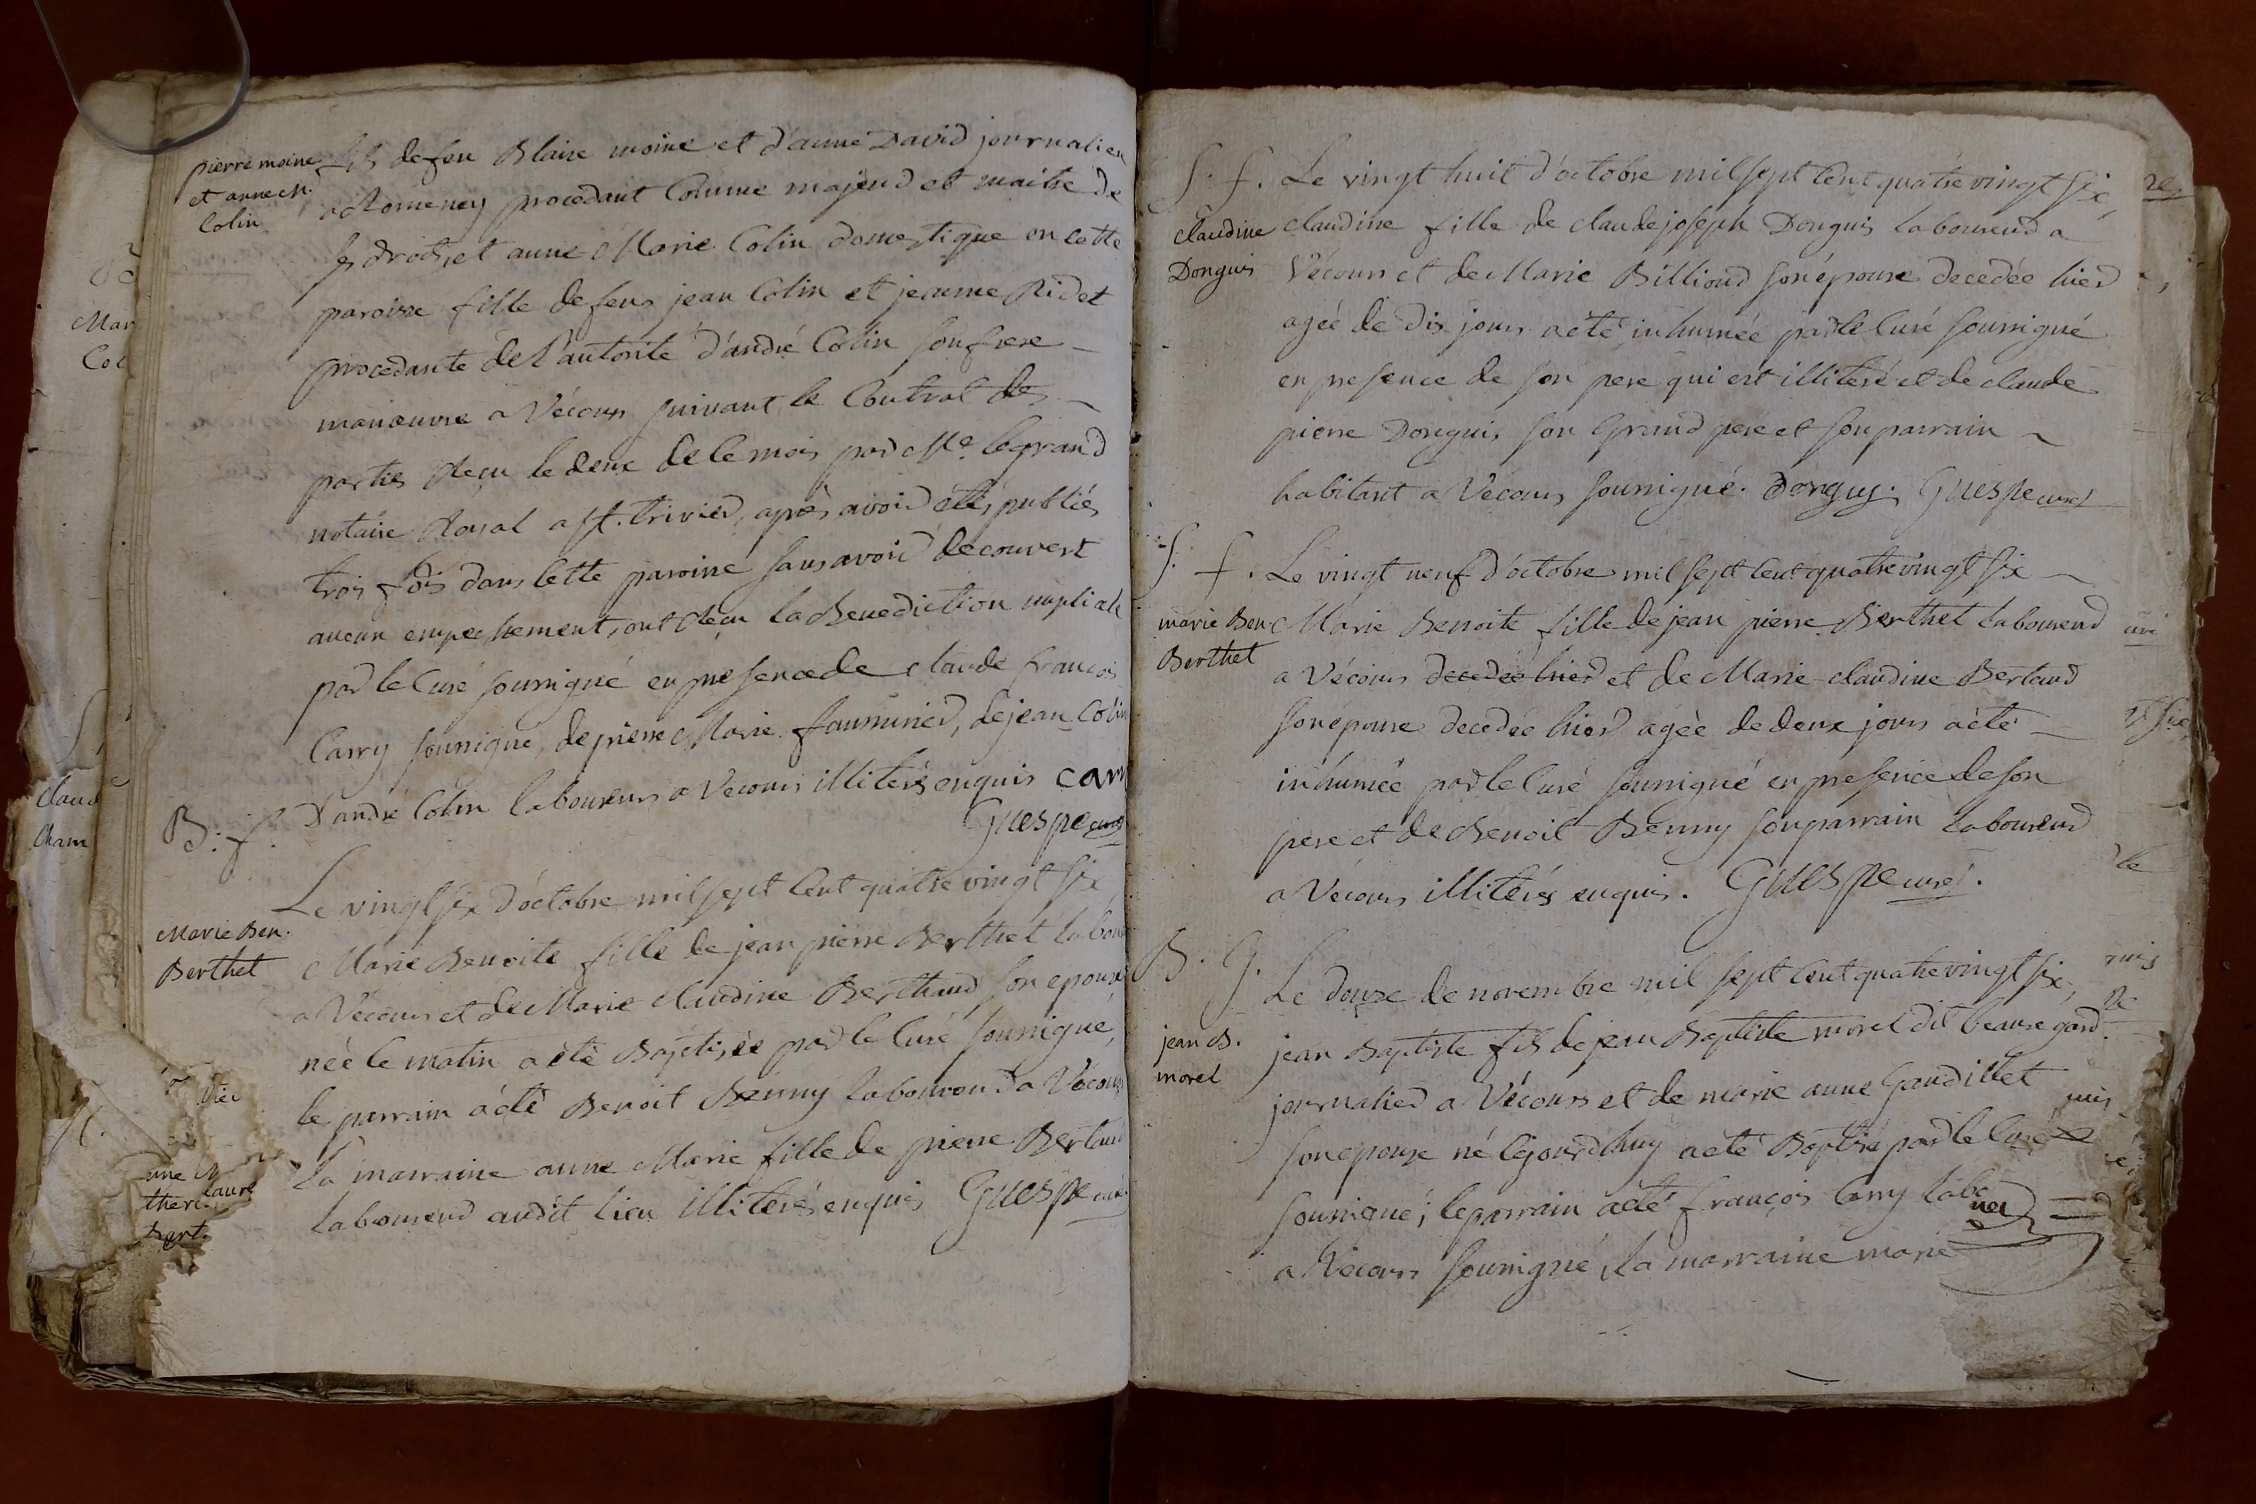 pierre moine
et anne M.
Colin
fils de feu Blaise moine et d'anne David journalier
a Romeney procedant Comme majeur et maitre de
ses droits, et anne Marie Colin domestique en cette
paroisse fille de feus jean Colin et jeanne Ridet
procedante de l'autorité d'andré Colin son frere
manœuvre a Vécours suivant le Contrat des
parties Reçu le deux de ce mois par Me legrand
notaire Royal a St. trivier, après avoir étés publiés
trois fois dans cette paroisse sans avoir découvert
aucun empechement, ont Reçu la Benediction nuptiale
par le Curé soussigné en presence de claude françois
Carry soussigné, de pierre Marie faussurier, de jean Colin
D'andré Colin laboureurs a Vecours illiterés enquis Carry
Guespe curé
B. f.
Marie Ben.
Berthet
Le vingt six d'octobre mil sept Cent quatre vingt six
Marie Benoite fille de jean pierre Berthet labour
a Vécours et de Marie claudine Berthaud son epouse
née le matin a été Baptisée par le Curé soussigné,
le parrain a été Benoit Benny laboureur a Vécours
la marraine anne Marie fille de pierre Bertaud
laboureur audit lieu illiterés enquis Guespe curé
Mar
Col
claud
Cham
S. f.
claudine
Donguis
Le vingt huit d'octobre mil sept Cent quatre vingt six,
claudine fille de claude joseph Donguis laboureur a
Vécours et de Marie Billioud son épouse decedée hier
ageé de dix jours a été inhumée par le Curé soussigné
en presence de son pere qui est illiteré et de claude
pierre Donguis son Grand pere et son parrain
habitant a Vécours soussigné. Donguy. Guespe curé
S. f.
marie Ben
Berthet
Le vingt neuf d'octobre mil sept Cent quatre vingt six
Marie Benoite fille de jean pierre Berthet laboureur
a Vécours decedée hier et de Marie claudine Bertaud
son épouse decedée hier agée de deux jours a été
inhumée par le Curé soussigné en presence de son
pere et de Benoit Benny son parrain laboureur
a Vécours illiterés enquis. Guespe curé.
B. G.
jean B.
morel
Le douze de novembre mil sept Cent quatre vingt six,
jean Baptiste fils de jean Baptiste morel dit beauregard
journalier a Vécours et de marie anne Gaudillet
son epouse né cejourd'huy a été Baptisé par le Curé
soussigné; le parrain a été françois Carry labo
a Vecours soussigné, la marraine marie